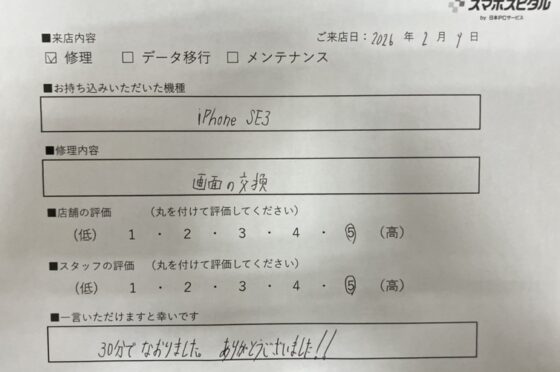 スマホスピタル
by 日本PCサービス
■来店内容
ご来店日：2026 年 2 月 9 日
☑ 修理 □ データ移行 □ メンテナンス
■お持ち込みいただいた機種
iPhone SE3
■修理内容
画面の交換
■店舗の評価 （丸を付けて評価してください）
（低） 1 ・ 2 ・ 3 ・ 4 ・ ⑤ （高）
■スタッフの評価 （丸を付けて評価してください）
（低） 1 ・ 2 ・ 3 ・ 4 ・ ⑤ （高）
■一言いただけますと幸いです
30分でなおりました。 ありがとうございました!!